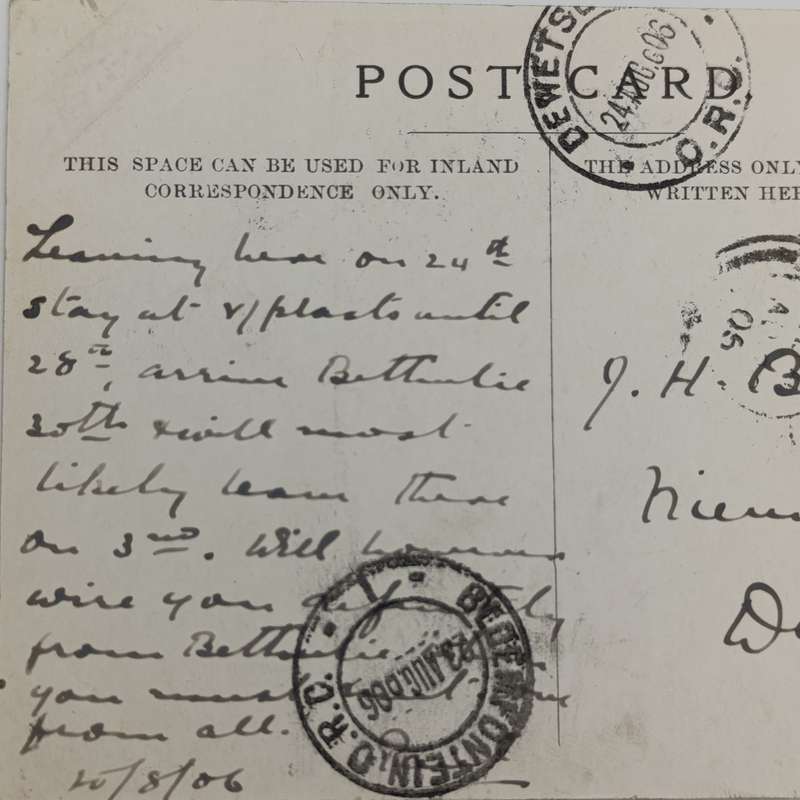 POST CARD.
THIS SPACE CAN BE USED FOR INLAND
CORRESPONDENCE ONLY.
THE ADDRESS ONLY
WRITTEN HER
DEWETSD
24 AUG 06
O.R.C.
Leaving here on 24th
stay at v/plaats until
28th, arrive Bethulie
30th & will most
likely leave there
on 3rd. Will however
wire you definitely
from Bethulie
you must
from all.
20/8/06
J. H. B
Nieuw
De
05
1
23 AUG 06
FONTEIN. O.R.C.